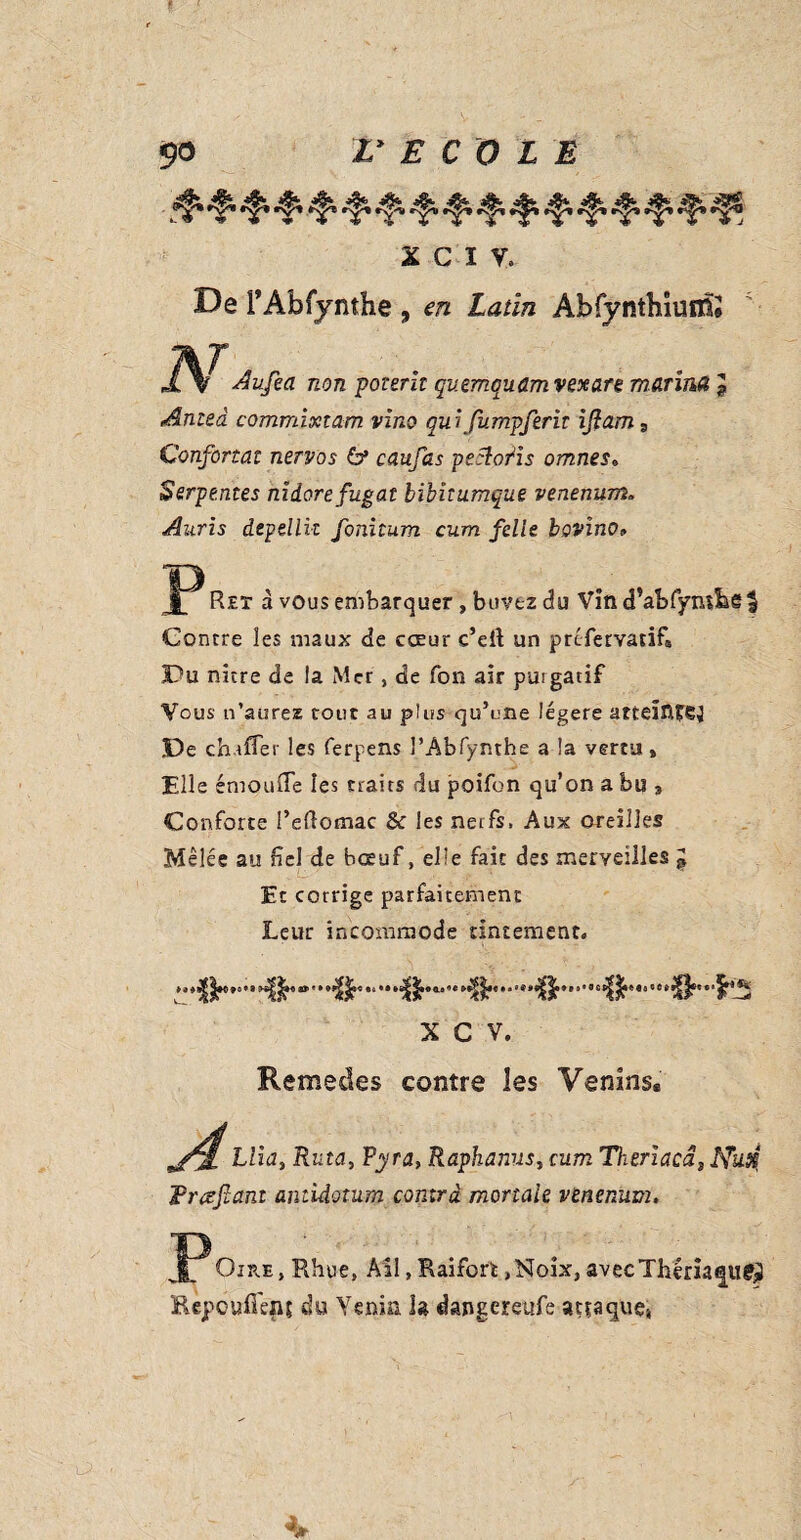 90 L'ECOLE
XCIV.
De l'Abſynthe, en Latin Abſynthium.
NAuſea non poterit quemquam vexare marina;
Anteà commixtam vino qui ſumpſerit iſtam,
Confortat nervos & cauſas pectoris omnes.
Serpentes nidore fugat bibitumque venenum.
Auris depellit ſonitum cum felle bovino.
PRET à vous embarquer, buvez du Vin d'abſynthe;
Contre les maux de cœur c'eſt un préſervatif,
Du nitre de la Mer, de ſon air purgatif
Vous n'aurez tout au plus qu'une légere atteinte;
De chaſſer les ſerpens l'Abſynthe a la vertu,
Elle émouſſe les traits du poiſon qu'on a bu,
Conforte l'eſtomac & les nerfs. Aux oreilles
Mêlée au fiel de bœuf, elle fait des merveilles;
Et corrige parfaitement
Leur incommode tintement.
XCV.
Remedes contre les Venins.
ALlia, Ruta, Pyra, Raphanus, cum Theriacâ, Nux
Præſtant antidotum contrà mortale venenum.
POIRE, Rhue, Ail, Raifort, Noix, avec Thériaque,
Repouſſent du Venin la dangereuſe attaque.